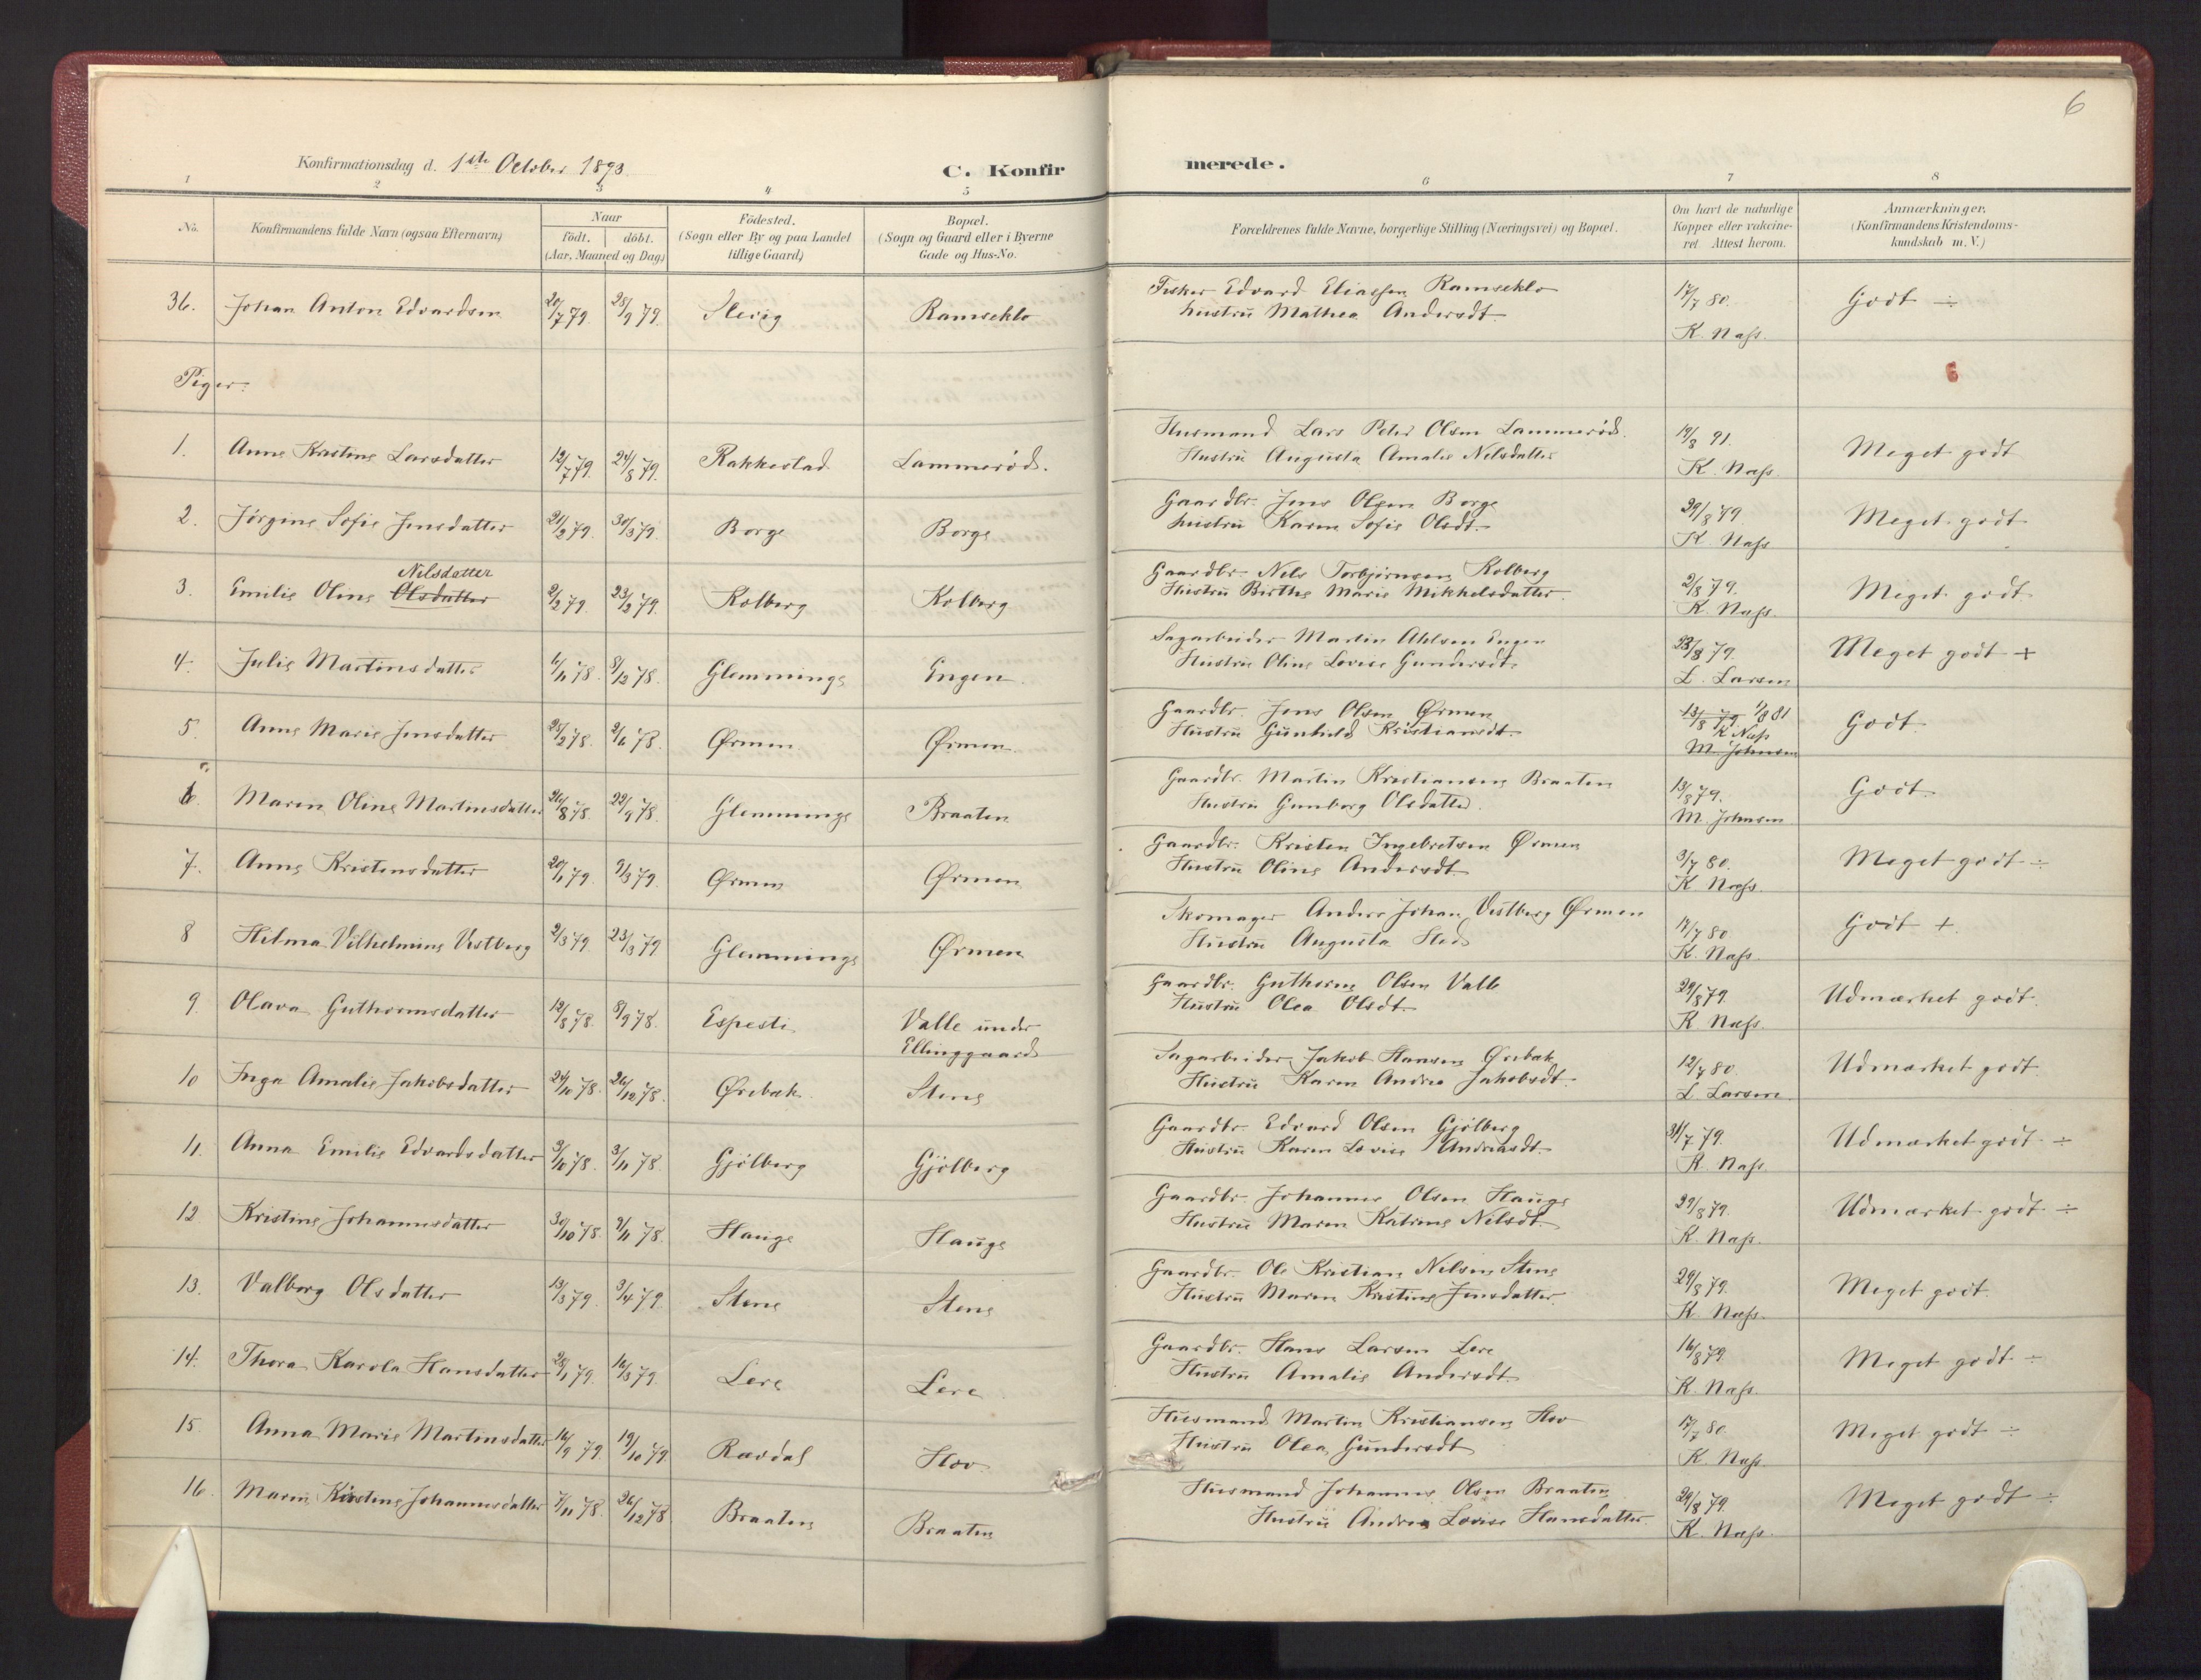 6
Konfirmationsdag d. 1ste October 1893.
C. Konfirmerede.
1 2 3 4 5 6 7 8
No. | Konfirmandens fulde Navn (ogsaa Efternavn) | Naar födt. | döbt. (Aar, Maaned og Dag) | Födested. (Sogn eller By og paa Landet tillige Gaard) | Bopæl. (Sogn og Gaard eller i Byerne Gade og Hus-No. | Forældrenes fulde Navne, borgerlige Stilling (Næringsvei) og Bopæl. | Om havt de naturlige Kopper eller vakcineret Attest herom. | Anmærkninger. (Konfirmandens Kristendomskundskab m. V.)
36. Johan Anton Edvardsen 20/7 79. 28/9 79. Slevig Ramseklo Fisker Edvard Eliassen Ramseklo 17/7 80. Godt ÷
hustru Mathea Andersdt. K. Næss.
Piger:
6
1. Anne Kristine Larsdatter 12/7 79. 24/8 79. Rakkestad Lammerød. Husmand Lars Peter Olsen Lammerød. 19/8 91. Meget godt
Hustru Augusta Amalie Nilsdatter K. Næss.
2. Jørgine Sofie Jensdatter 21/2 79. 30/3 79. Borge Borge Gaardbr. Jens Olsen Borge 29/8 79. Meget godt
hustru Karen Sofie Olsdt. K. Næss
3. Emilie Oline Olsdatter Nilsdatter 2/2 79. 23/2 79. Kolberg Kolberg Gaardbr. Nils Torbjørnsen Kolberg 2/8 79. Meget godt
Hustru Birthe Marie Mikkelsdatter. K. Næss.
4. Julie Martinsdatter 6/11 78. 8/12 78. Glemminge Engen. Sagarbeider Martin Ahlsen Engen 23/8 79. Meget godt +
Hustru Oline Lovise Gundersdt. L. Larsen
5. Anne Marie Jensdatter 25/2 78. 2/6 78. Ørmen Ørmen Gaardbr. Jens Olsen Ørmen 13/8 79 1/8 81 Godt
Hustru Gunhild Kristiansdt. K Næss
M. Johnsen
6. Maren Oline Martinsdatter 26/8 78. 22/9 78. Glemminge Braaten Gaardbr. Martin Kristiansen Braaten 13/8 79. Godt.
Hustru Gunborg Olsdatter. M. Johnsen
7. Anne Kristensdatter 20/1 79. 9/3 79. Ørmen Ørmen Gaardbr. Kristen Ingebretsen Ørmen 3/7 80. Meget godt ÷
Hustru Oline Andersdt. K. Næss.
8 Hilma Vilhelmine Vestberg 2/3 79. 23/3 79 Glemminge Ørmen Skomager Anders Johan Vestberg Ørmen 17/7 80 Godt +
Hustru Augusta K. Næss.
9. Olava Guthormsdatter 12/8 78. 8/9 78. Espesti Valle under Ellinggaard Gaardbr. Guthorm Olsen Valle 29/8 79. Udmærket godt.
Hustru Olea Olsdt. K. Næss.
10 Inga Amalie Jakobsdatter 24/11 78. 26/12 78. Ørebæk. Stene Sagarbeider Jakob Hansen Ørebæk 12/7 80. Udmærket godt
Hustru Karen Andrea Jakobsdt. L. Larsen
11. Anna Emilie Edvardsdatter 3/10 78. 3/11 78. Gjølberg Gjølberg Gaardbr. Edvard Olsen Gjølberg 31/7 79. Udmærket godt ÷
Hustru Karen Lovise Andreasdt. K. Næss.
12 Kristine Johannesdatter 30/10 78. 9/11 78. Hauge Hauge Gaardbr. Johannes Olsen Hauge 29/8 79. Udmærket godt ÷
Hustru Maren Katrine Nilsdt. K. Næss.
13. Valborg Olsdatter 13/3 79. 3/4 79. Stene Stene Gaardbr. Ole Kristian Nilsen Stene 29/8 79. Meget godt.
Hustru Maren Kristine Jensdatter. K. Næss.
14. Thora Karola Hansdatter 28/1 79. 16/3 79. Lere Lere Gaardbr. Hans Larsen Lere 16/8 79 Meget godt ÷
Hustru Amalie Andersdt. K. Næss.
15. Anna Marie Martinsdatter 16/9 79. 19/10 79. Rævdal Hov Husmand Martin Kristiansen Hov 17/7 80. Meget godt ÷
Hustru Olea Gundersdt K. Næss.
16. Maren Kirstine Johannesdatter 7/11 78. 26/12 78 Braaten Braaten Husmand Johannes Olsen Braaten 29/8 79. Meget godt ÷
Hustru Andrea Lovise Hansdatter. K. Næss.